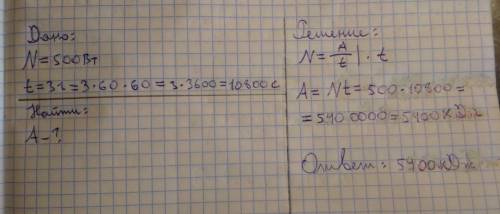 Дано:
N=500Вт
t=3ч=3·60·60=3·3600=10800с
Найти:
A-?
Решение:
N=A/t |·t
A=Nt=500·10800=
=5400000=5400кДж
Ответ: 5400кДж